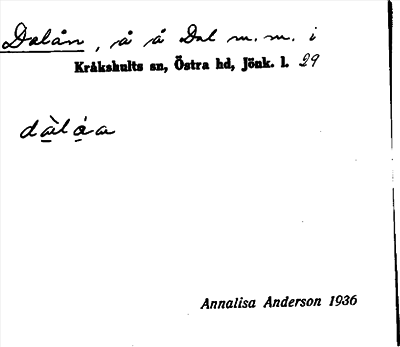 Dalån, å å Dal m.m. i
Kråkshults sn, Östra hd, Jönk. l. 29
dàlǻa
Annalisa Anderson 1936